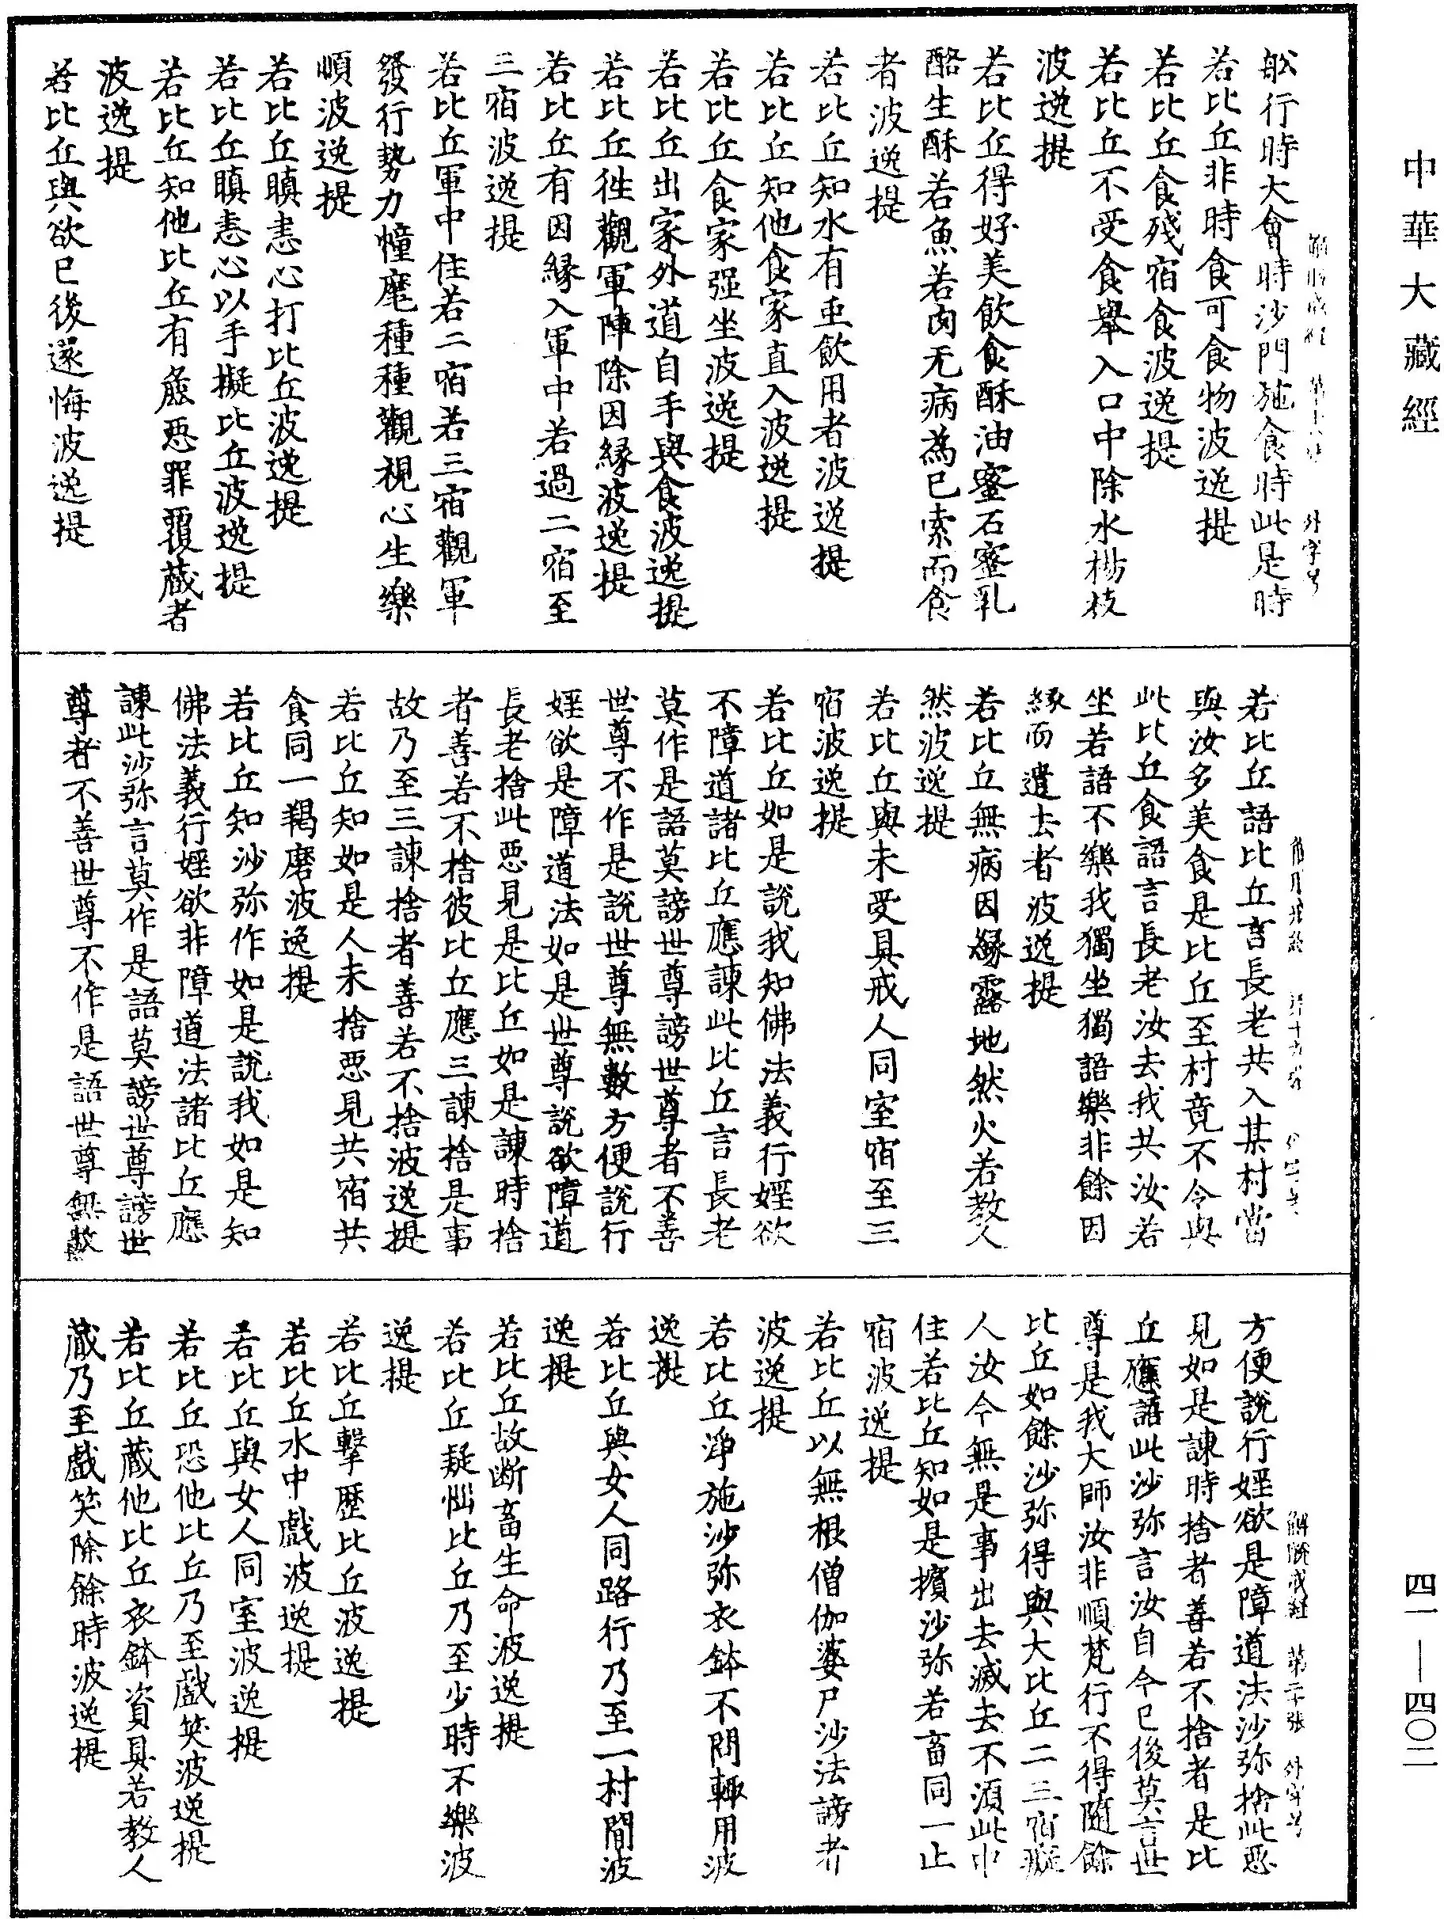 中華大藏經
四一—四〇二
舩行時大會時沙門施食時此是時
若比丘非時食可食物波逸提
若比丘食殘宿食波逸提
若比丘不受食舉入口中除水楊枝
波逸提
若比丘得好美飲食酥油蜜石蜜乳
酪生酥若魚若肉无病為已索而食
者波逸提
若比丘知水有虫飲用者波逸提
若比丘知他食家直入波逸提
若比丘食家强坐波逸提
若比丘出家外道自手與食波逸提
若比丘徃觀軍陣除因緣波逸提
若比丘有因緣入軍中若過二宿至
三宿波逸提
若比丘軍中住若二宿若三宿觀軍
發行勢力幢麾種種觀視心生樂
順波逸提
若比丘瞋恚心打比丘波逸提
若比丘瞋恚心以手擬比丘波逸提
若比丘知他比丘有麁惡罪覆藏者
波逸提
若比丘與欲已後還悔波逸提
若比丘語比丘言長老共入某村當
與汝多美食是比丘至村竟不令與
此比丘食語言長老汝去我共汝若
坐若語不樂我獨坐獨語樂非餘因
緣而遣去者波逸提
若比丘無病因緣露地然火若教人
然波逸提
若比丘與未受具戒人同室宿至三
宿波逸提
若比丘如是說我知佛法義行婬欲
不障道諸比丘應諫此比丘言長老
莫作是語莫謗世尊謗世尊者不善
世尊不作是說世尊無數方便說行
婬欲是障道法如是世尊說欲障道
長老捨此惡見是比丘如是諫時捨
者善若不捨彼比丘應三諫捨是事
故乃至三諫捨者善若不捨波逸提
若比丘知如是人未捨惡見共宿共
食同一羯磨波逸提
若比丘知沙弥作如是說我如是知
佛法義行婬欲非障道法諸比丘應
諫此沙弥言莫作是語莫謗世尊謗世
尊者不善世尊不作是語世尊無數
解脫戒經 第二十張 外字号
方便說行婬欲是障道法沙弥捨此惡
見如是諫時捨者善若不捨者是比
丘應語此沙弥言汝自今已後莫言世
尊是我大師汝非順梵行不得隨餘
比丘如餘沙弥得與大比丘二三宿癡
人汝今無是事出去滅去不須此中
住若比丘知如是擯沙弥若畜同一止
宿波逸提
若比丘以無根僧伽婆尸沙法謗者
波逸提
若比丘淨施沙弥衣鉢不問輙用波
逸提
若比丘與女人同路行乃至一村間波
逸提
若比丘故断畜生命波逸提
若比丘疑惱比丘乃至少時不樂波
逸提
若比丘擊歷比丘波逸提
若比丘水中戲波逸提
若比丘與女人同室波逸提
若比丘恐他比丘乃至戲笑波逸提
若比丘藏他比丘衣鉢資具若教人
藏乃至戲笑除餘時波逸提